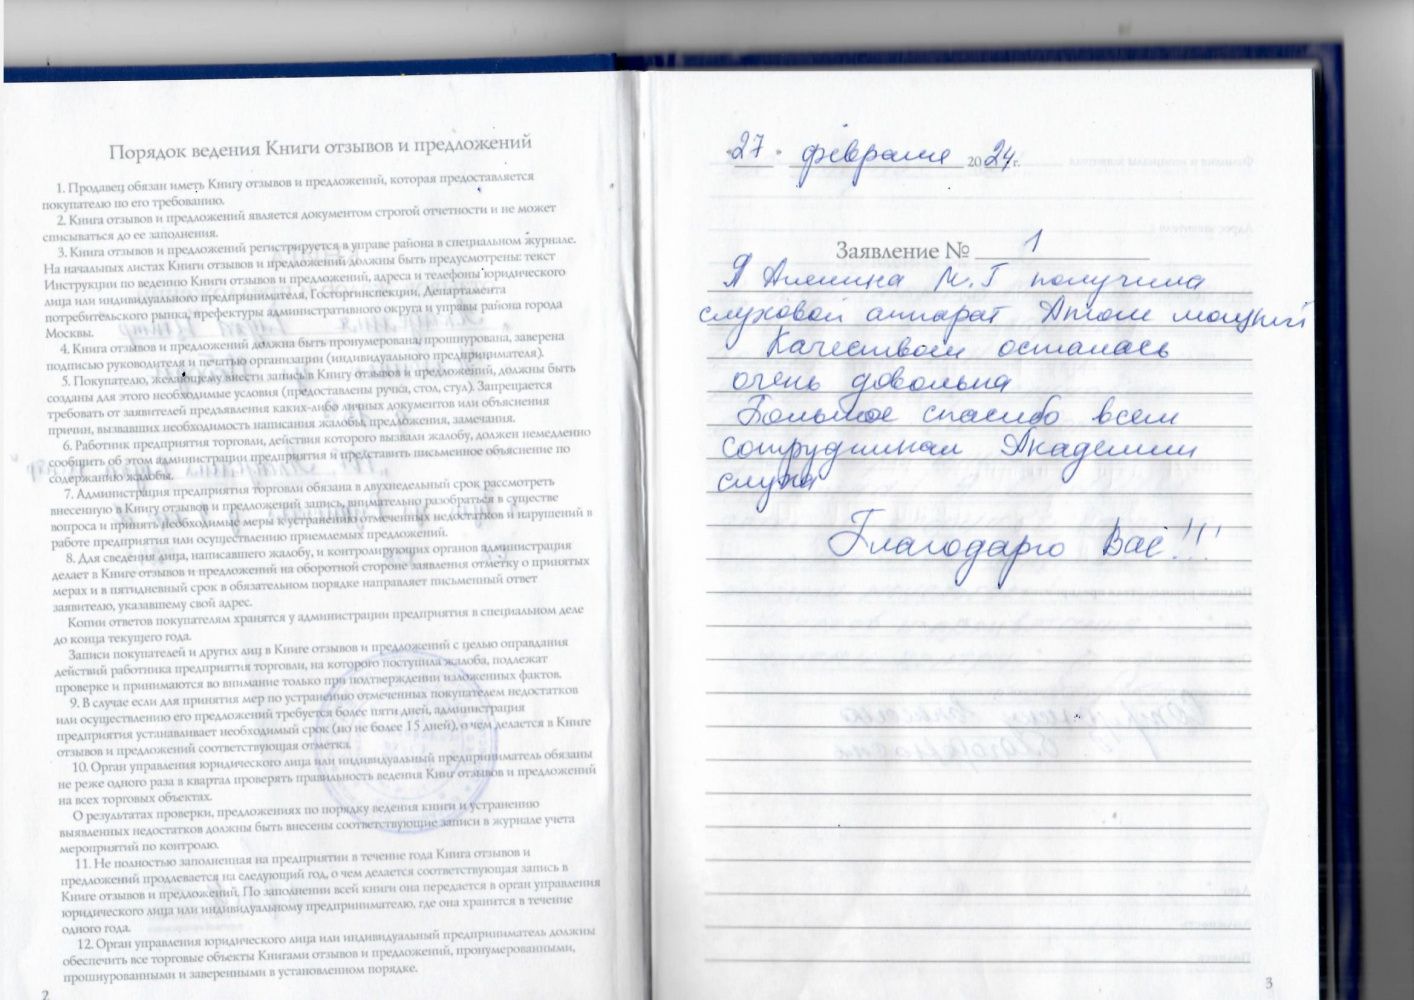 Порядок ведения Книги отзывов и предложений
1. Продавец обязан иметь Книгу отзывов и предложений, которая предоставляется
покупателю по его требованию.
2. Книга отзывов и предложений является документом строгой отчетности и не может
списываться до ее заполнения.
3. Книга отзывов и предложений регистрируется в управе района в специальном журнале.
На начальных листах Книги отзывов и предложений должны быть предусмотрены: текст
Инструкции по ведению Книги отзывов и предложений, адреса и телефоны юридического
лица или индивидуального предпринимателя, Госторгинспекции, Департамента
потребительского рынка, префектуры административного округа и управы района города
Москвы.
4. Книга отзывов и предложений должна быть пронумерована, прошнурована, заверена
подписью руководителя и печатью организации (индивидуального предпринимателя).
5. Покупателю, желающему внести запись в Книгу отзывов и предложений, должны быть
созданы для этого необходимые условия (предоставлены ручка, стол, стул). Запрещается
требовать от заявителей предъявления каких-либо личных документов или объяснения
причин, вызвавших необходимость написания жалобы, предложения, замечания.
6. Работник предприятия торговли, действия которого вызвали жалобу, должен немедленно
сообщить об этом администрации предприятия и представить письменное объяснение по
содержанию жалобы.
7. Администрация предприятия торговли обязана в двухнедельный срок рассмотреть
внесенную в Книгу отзывов и предложений запись, внимательно разобраться в существе
вопроса и принять необходимые меры к устранению отмеченных недостатков и нарушений в
работе предприятия или осуществлению приемлемых предложений.
8. Для сведения лица, написавшего жалобу, и контролирующих органов администрация
делает в Книге отзывов и предложений на оборотной стороне заявления отметку о принятых
мерах и в пятидневный срок в обязательном порядке направляет письменный ответ
заявителю, указавшему свой адрес.
Копии ответов покупателям хранятся у администрации предприятия в специальном деле
до конца текущего года.
Записи покупателей и других лиц в Книге отзывов и предложений с целью оправдания
действий работника предприятия торговли, на которого поступила жалоба, подлежат
проверке и принимаются во внимание только при подтверждении изложенных фактов.
9. В случае если для принятия мер по устранению отмеченных покупателем недостатков
или осуществлению его предложений требуется более пяти дней, администрация
предприятия устанавливает необходимый срок (но не более 15 дней), о чем делается в Книге
отзывов и предложений соответствующая отметка.
10. Орган управления юридического лица или индивидуальный предприниматель обязаны
не реже одного раза в квартал проверять правильность ведения Книг отзывов и предложений
на всех торговых объектах.
О результатах проверки, предложениях по порядку ведения книги и устранению
выявленных недостатков должны быть внесены соответствующие записи в журнале учета
мероприятий по контролю.
11. Не полностью заполненная на предприятии в течение года Книга отзывов и
предложений продлевается на следующий год, о чем делается соответствующая запись в
Книге отзывов и предложений. По заполнении всей книги она передается в орган управления
юридического лица или индивидуальному предпринимателю, где она хранится в течение
одного года.
12. Орган управления юридического лица или индивидуальный предприниматель должны
обеспечить все торговые объекты Книгами отзывов и предложений, пронумерованными,
прошнурованными и заверенными в установленном порядке.
2
"27" февраля 2024г.
Заявление № 1
Я М.Г получила
слуховой аппарат Атом мощный
Качеством осталась
очень довольна
Большое спасибо всем
сотрудникам Академии
слуха
Благодарю Вас!!!
3